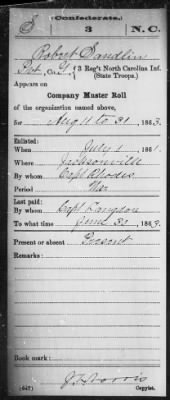 S Confederate.
3 N.C.
Robert Sandlin
Pvt, Co. G, 3 Reg't North Carolina Inf.
(State Troops.)
Appears on
Company Muster Roll
of the organization named above,
for Aug 11 to 31, 1863.
Enlisted:
When July 1, 1861.
Where Jacksonville
By whom Capt Rhodes
Period War
Last paid:
By whom Capt Langdon
To what time June 30, 1863.
Present or absent Present
Remarks:
Book mark:
J F Norris
(642) Copyist.